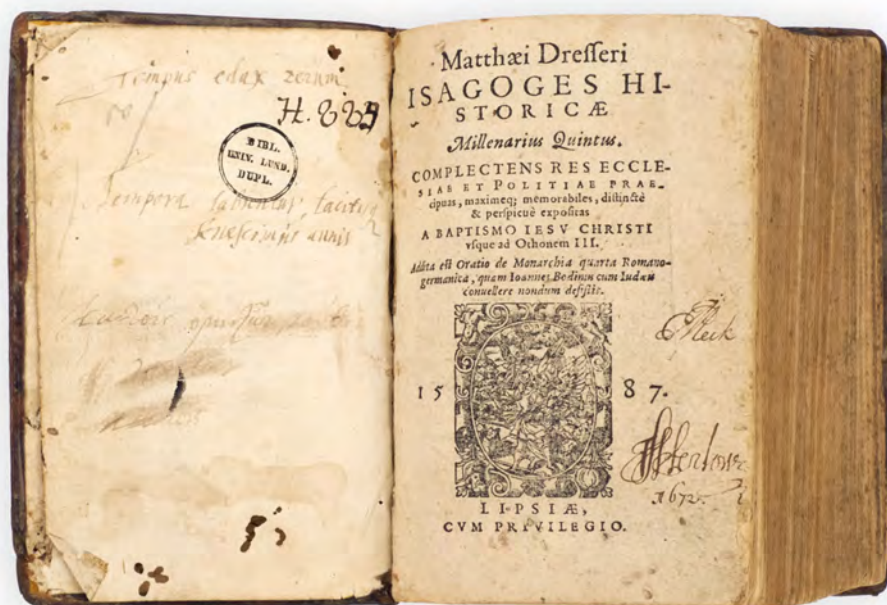 Tempus edax rerum
H. 889
BIBL.
UNIV. LUND.
DUPL.
Tempora labuntur, tacitisq
senescimus annis
Matthæi Dresseri
ISAGOGES HI-
STORICÆ
Millenarius Quintus.
COMPLECTENS RES ECCLE-
SIAE ET POLITIAE PRAE-
cipuas, maximeq; memorabiles, distinctè
& perspicuè expositas
A BAPTISMO IESV CHRISTI
vsque ad Othonem III.
Addita est Oratio de Monarchia quarta Romano-
germanica, quam Ioannes Bodinus cum Iudæis
convellere nondum desistit.
15 87.
LIPSIÆ,
CVM PRIVILEGIO.
1672